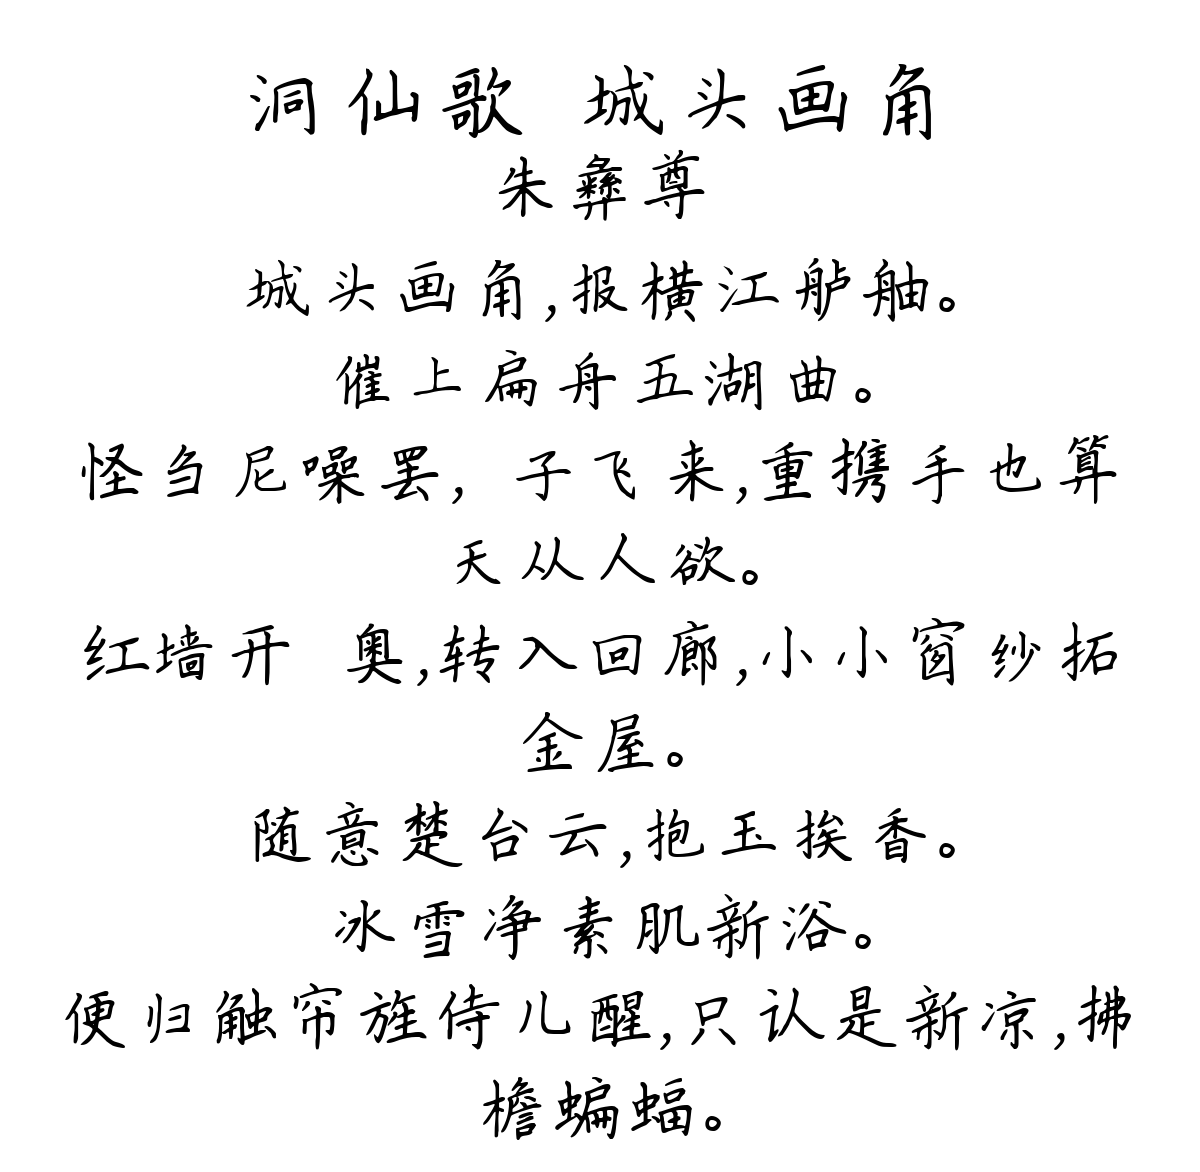 洞仙歌 城头画角
朱彝尊
城头画角,报横江舻舳。
催上扁舟五湖曲。
怪刍尼噪罢, 子飞来,重携手也算
天从人欲。
红墙开 奥,转入回廊,小小窗纱拓
金屋。
随意楚台云,抱玉挨香。
冰雪净素肌新浴。
便归触帘旌侍儿醒,只认是新凉,拂
檐蝙蝠。